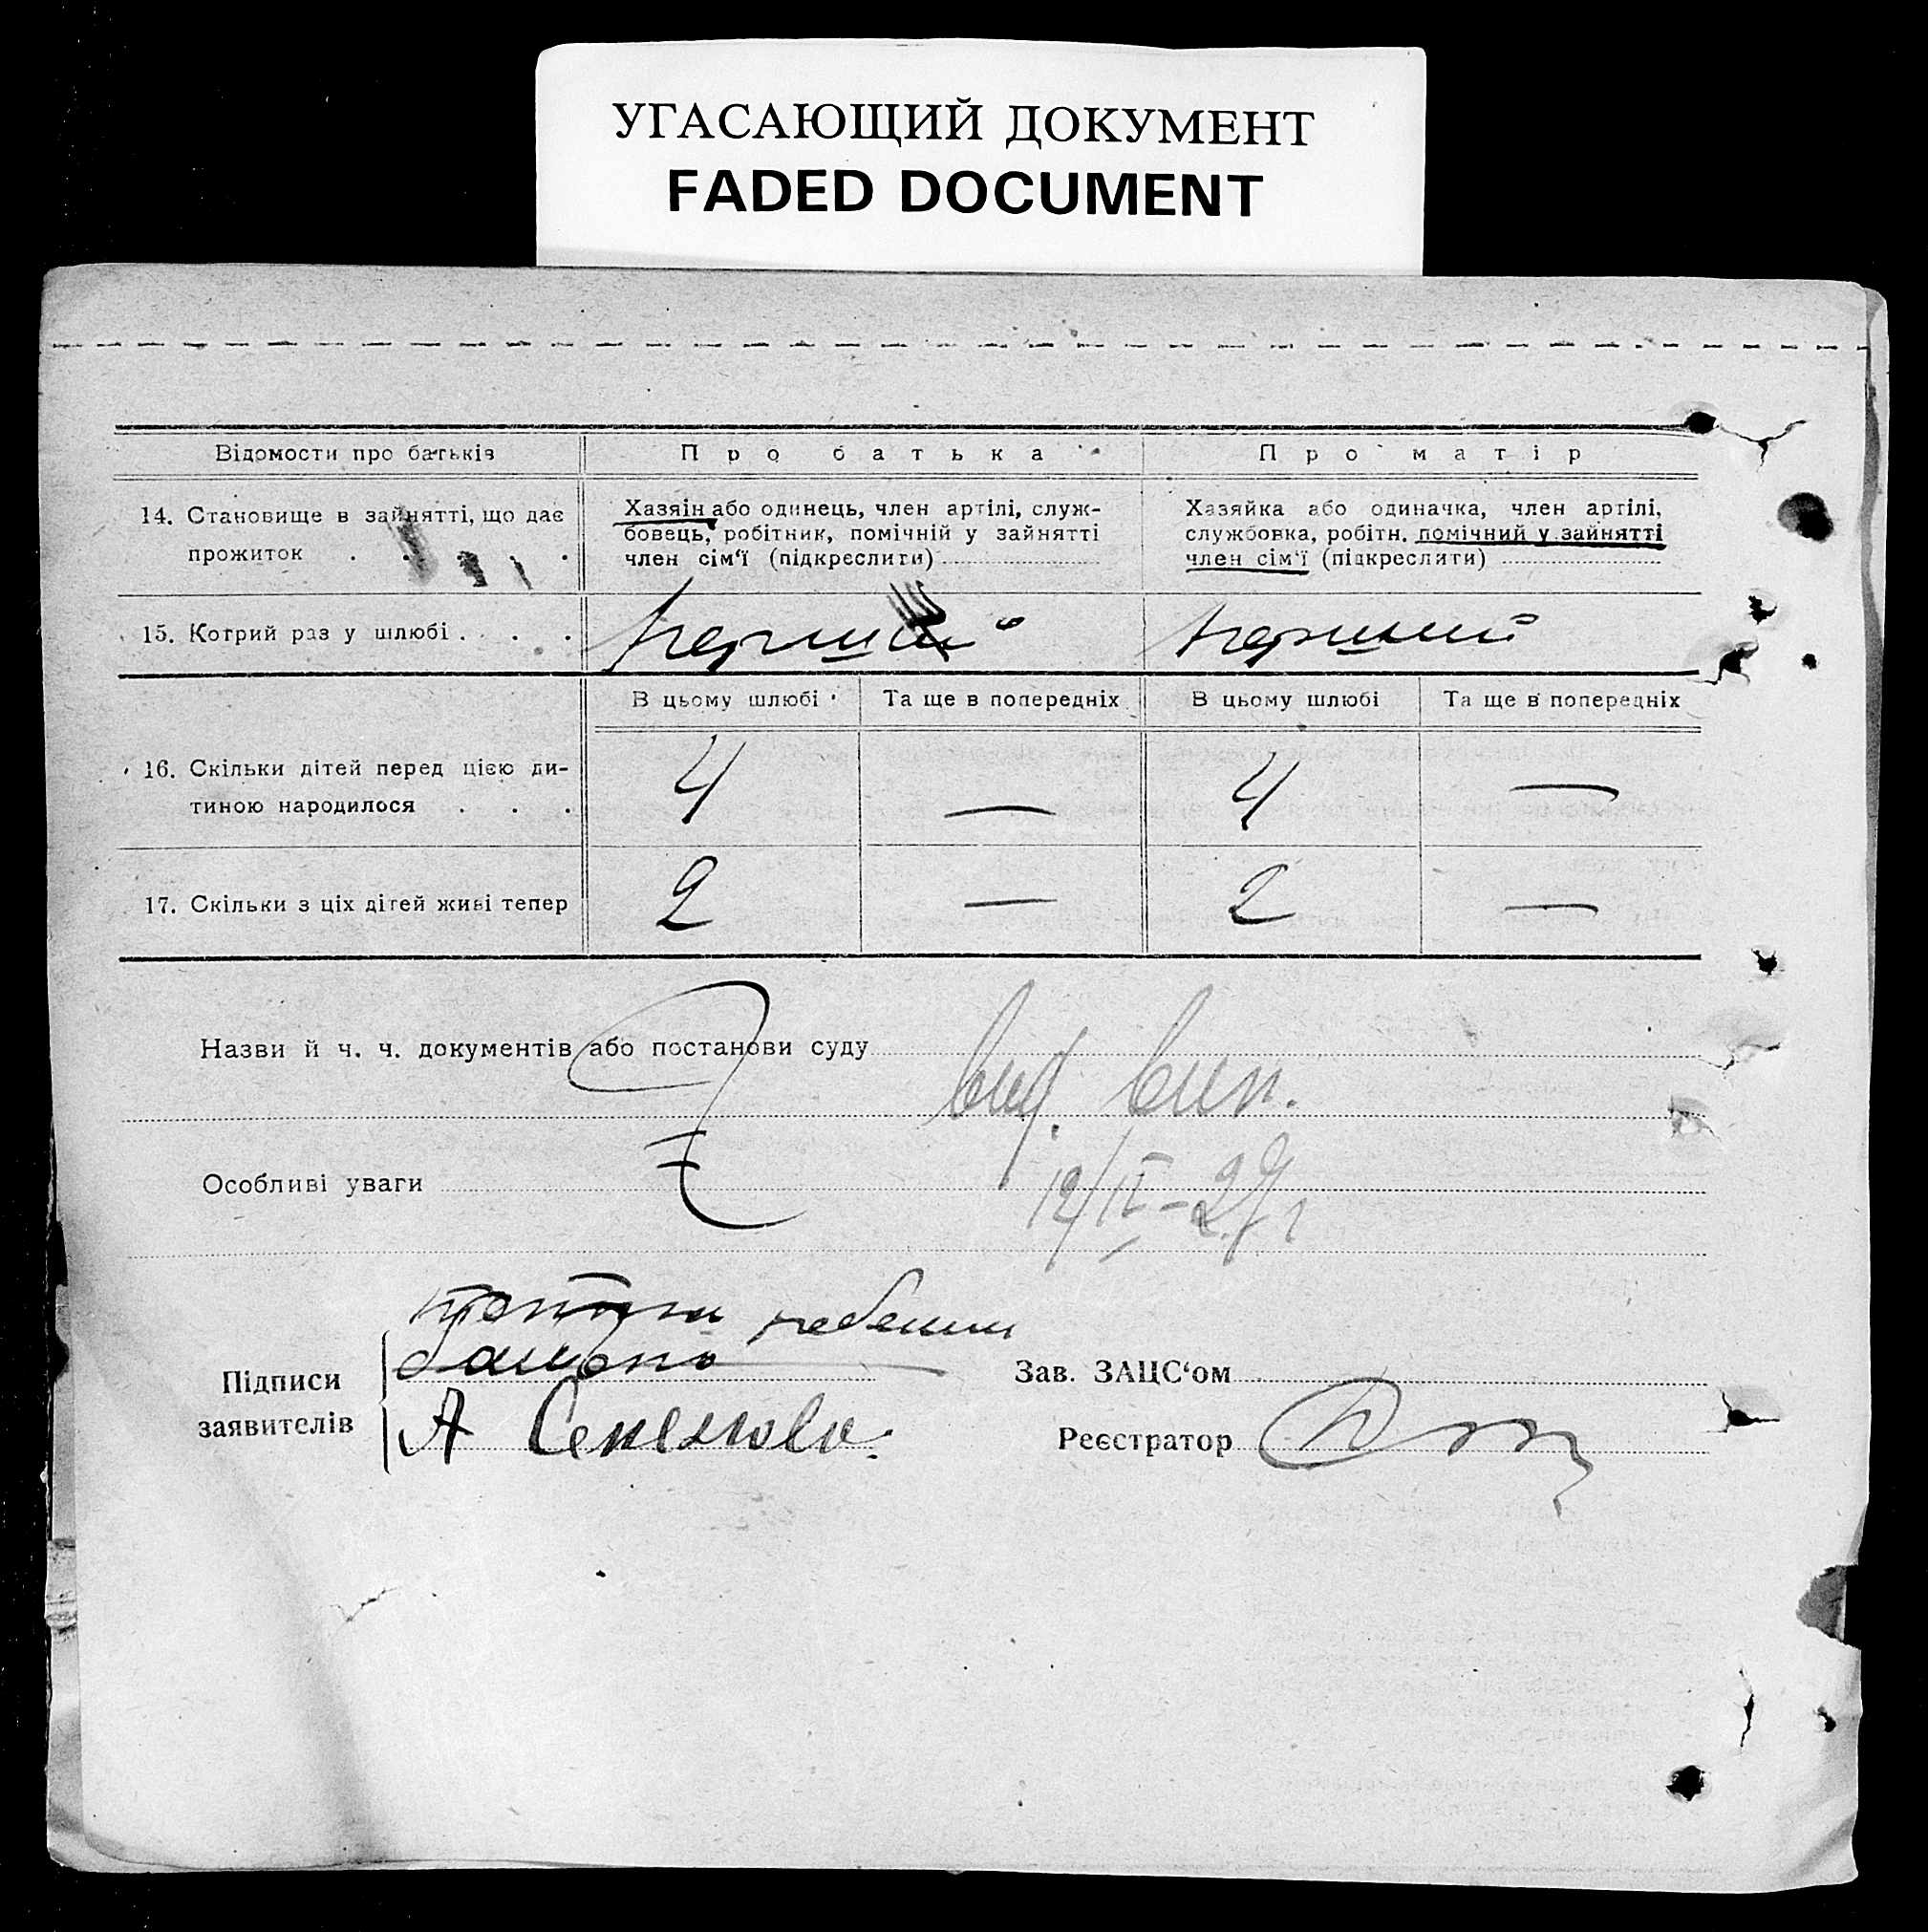 УГАСАЮЩИЙ ДОКУМЕНТ
FADED DOCUMENT
Відомости про батьків
Про батька
Про матір
14. Становище в зайнятті, що дає
прожиток . . .
Хазяїн або одинець, член артілі, служ-
бовець, робітник, помічній у зайнятті
член сім'ї (підкреслити)
Хазяйка або одиначка, член артілі,
службовка, робітн. помічний у зайнятті
член сім'ї (підкреслити)
15. Котрий раз у шлюбі . . .
перший
перший
В цьому шлюбі
Та ще в попередніх
В цьому шлюбі
Та ще в попередніх
16. Скільки дітей перед цією ди-
тиною народилося . . .
4
—
4
—
17. Скільки з ціх дітей живі тепер
2
—
2
—
Назви й ч. ч. документів або постанови суду
вид. вип.
Особливі уваги
Підписи
заявителів
А
Зав. ЗАЦС'ом
Реєстратор